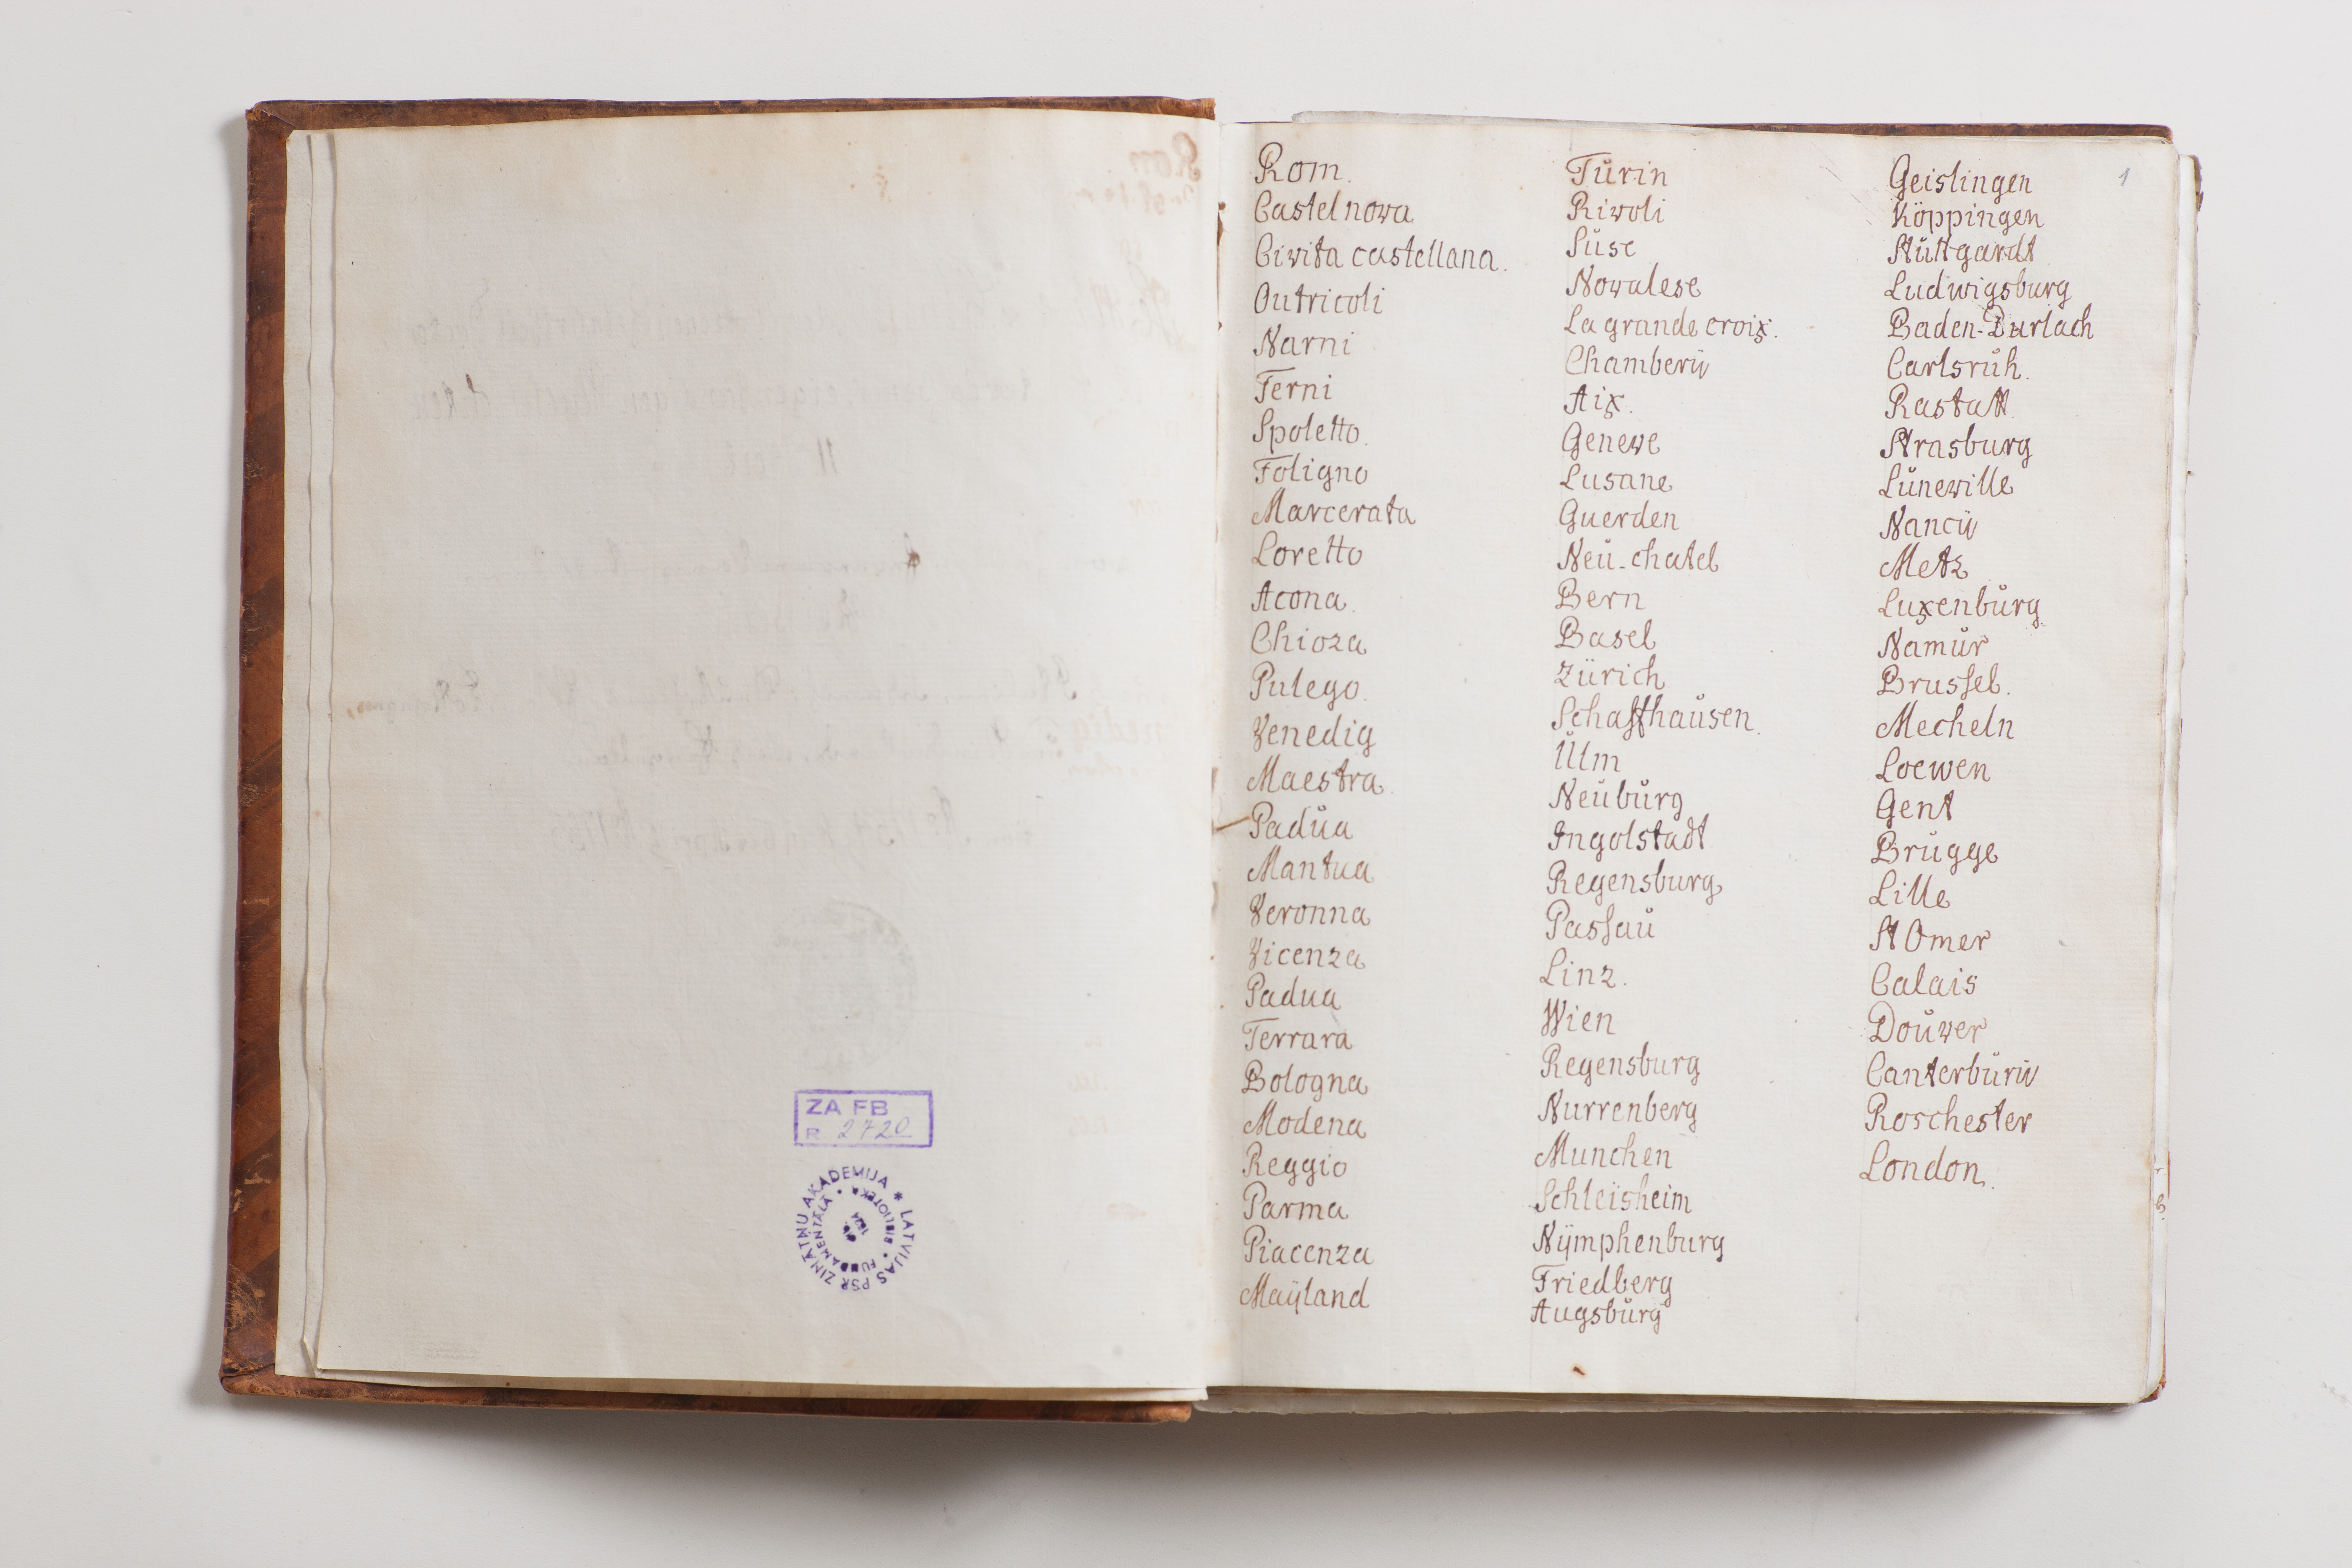 ZA FB
R 2720
LATVIJAS PSR ZINĀTŅU AKADEMIJA *
FUNDAMENTĀLĀ • BIBLIOTEKA •
1524
1
Rom.
Castelnowa
Civita castellana.
Outricoli
Narni
Terni
Spoletto.
Foligno
Marcerata
Loretto
Acona.
Chioza
Pulego.
Venedig
Maestra
Padŭa
Mantua
Veronna
Vicenza
Padua
Terrara
Bologna
Modena
Reggio
Parma
Piacenza
Maÿland
Tŭrin
Rivoli
Sŭse
Novalese
La grande croix.
Chamberÿ
Aix.
Geneve
Lusane
Guerden
Neŭ-chatel
Bern
Basel
Zürich
Schaffhaŭsen.
Ŭlm
Neŭbŭrg
Ingolstadt
Regensburg
Passaŭ
Linz.
Wien
Regensburg
Nurrenberg
Munchen
Schleisheim
Nÿmphenburg
Friedberg
Augsbŭrg
Geislingen
Köppingen
Stŭttgardt
Ludwigsburg
Baden-Durlach
Carlsrŭh.
Rastatt
Strasburg
Lŭneville
Nancÿ
Metz
Luxenbŭrg.
Namŭr
Brussel.
Mecheln
Loewen
Gent
Brŭgge
Lille
St Omer
Calais
Doŭver
Canterbŭrÿ
Roschester
London.